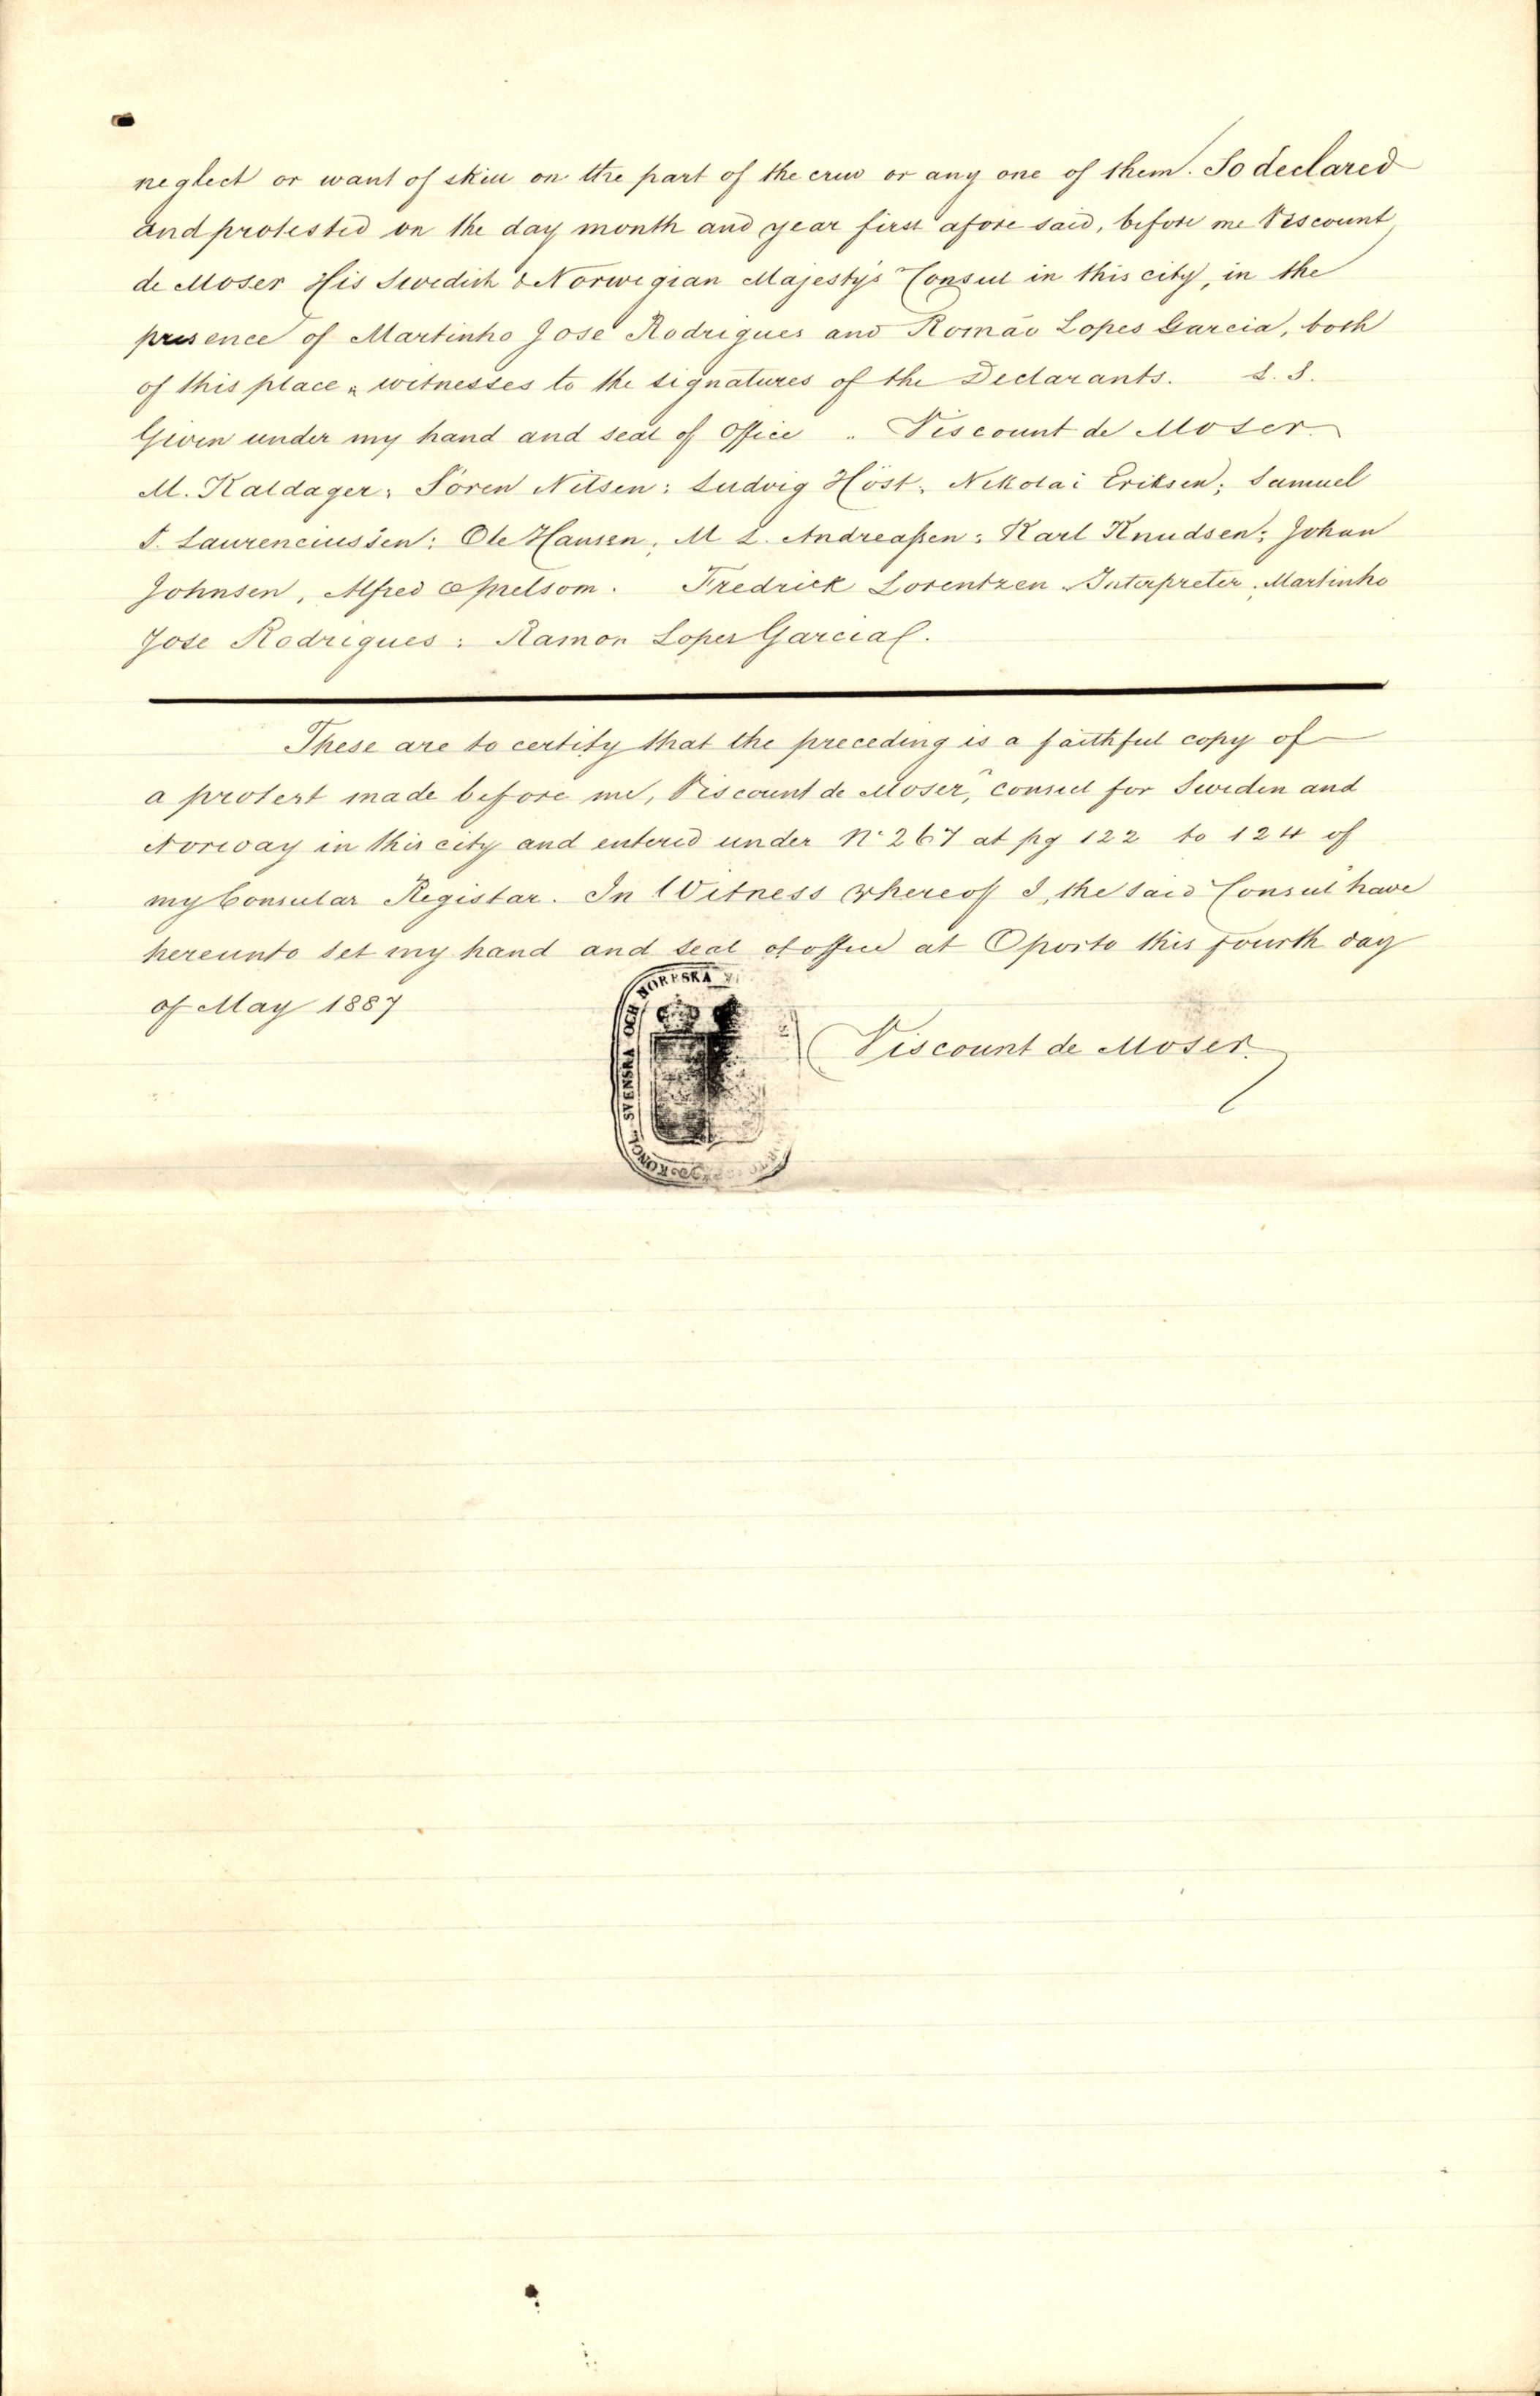 neglect or want of skill on the part of the crew or any one of them. So declared
and protested on the day month and year first afore said, before me Viscount
de Moser His Swedish & Norwegian Majesty's Consul in this city, in the
presence of Martinho Jose Rodrigues and Romão Lopes Garcia, both
of this place, witnesses to the signatures of the Declarants. L. S.
Given under my hand and seal of Office .. Viscount de Moser.
M. Kaldager; Sören Nilsen: Ludvig Höst, Nikolai Eriksen; Samuel
T. Laurenciussen: Ole Hansen; M L. Andreassen: Karl Knudsen; Johan
Johnsen, Alfred Apelsom. Fredrick Lorentzen Interpreter. Martinho
Jose Rodrigues: Ramon Lopes Garcia.
These are to certify that the preceding is a faithful copy of
a protest made before me, Viscount de Moser, consul for Sweden and
Norway in this city and entered under No 267 at pg 122 to 124 of
my Consular Registar. In Witness whereof I, the said Consul have
hereunto set my hand and seal of office at Oporto this fourth day
of May 1887
SVENSKA OCH NORRSKA
Viscount de Moser.